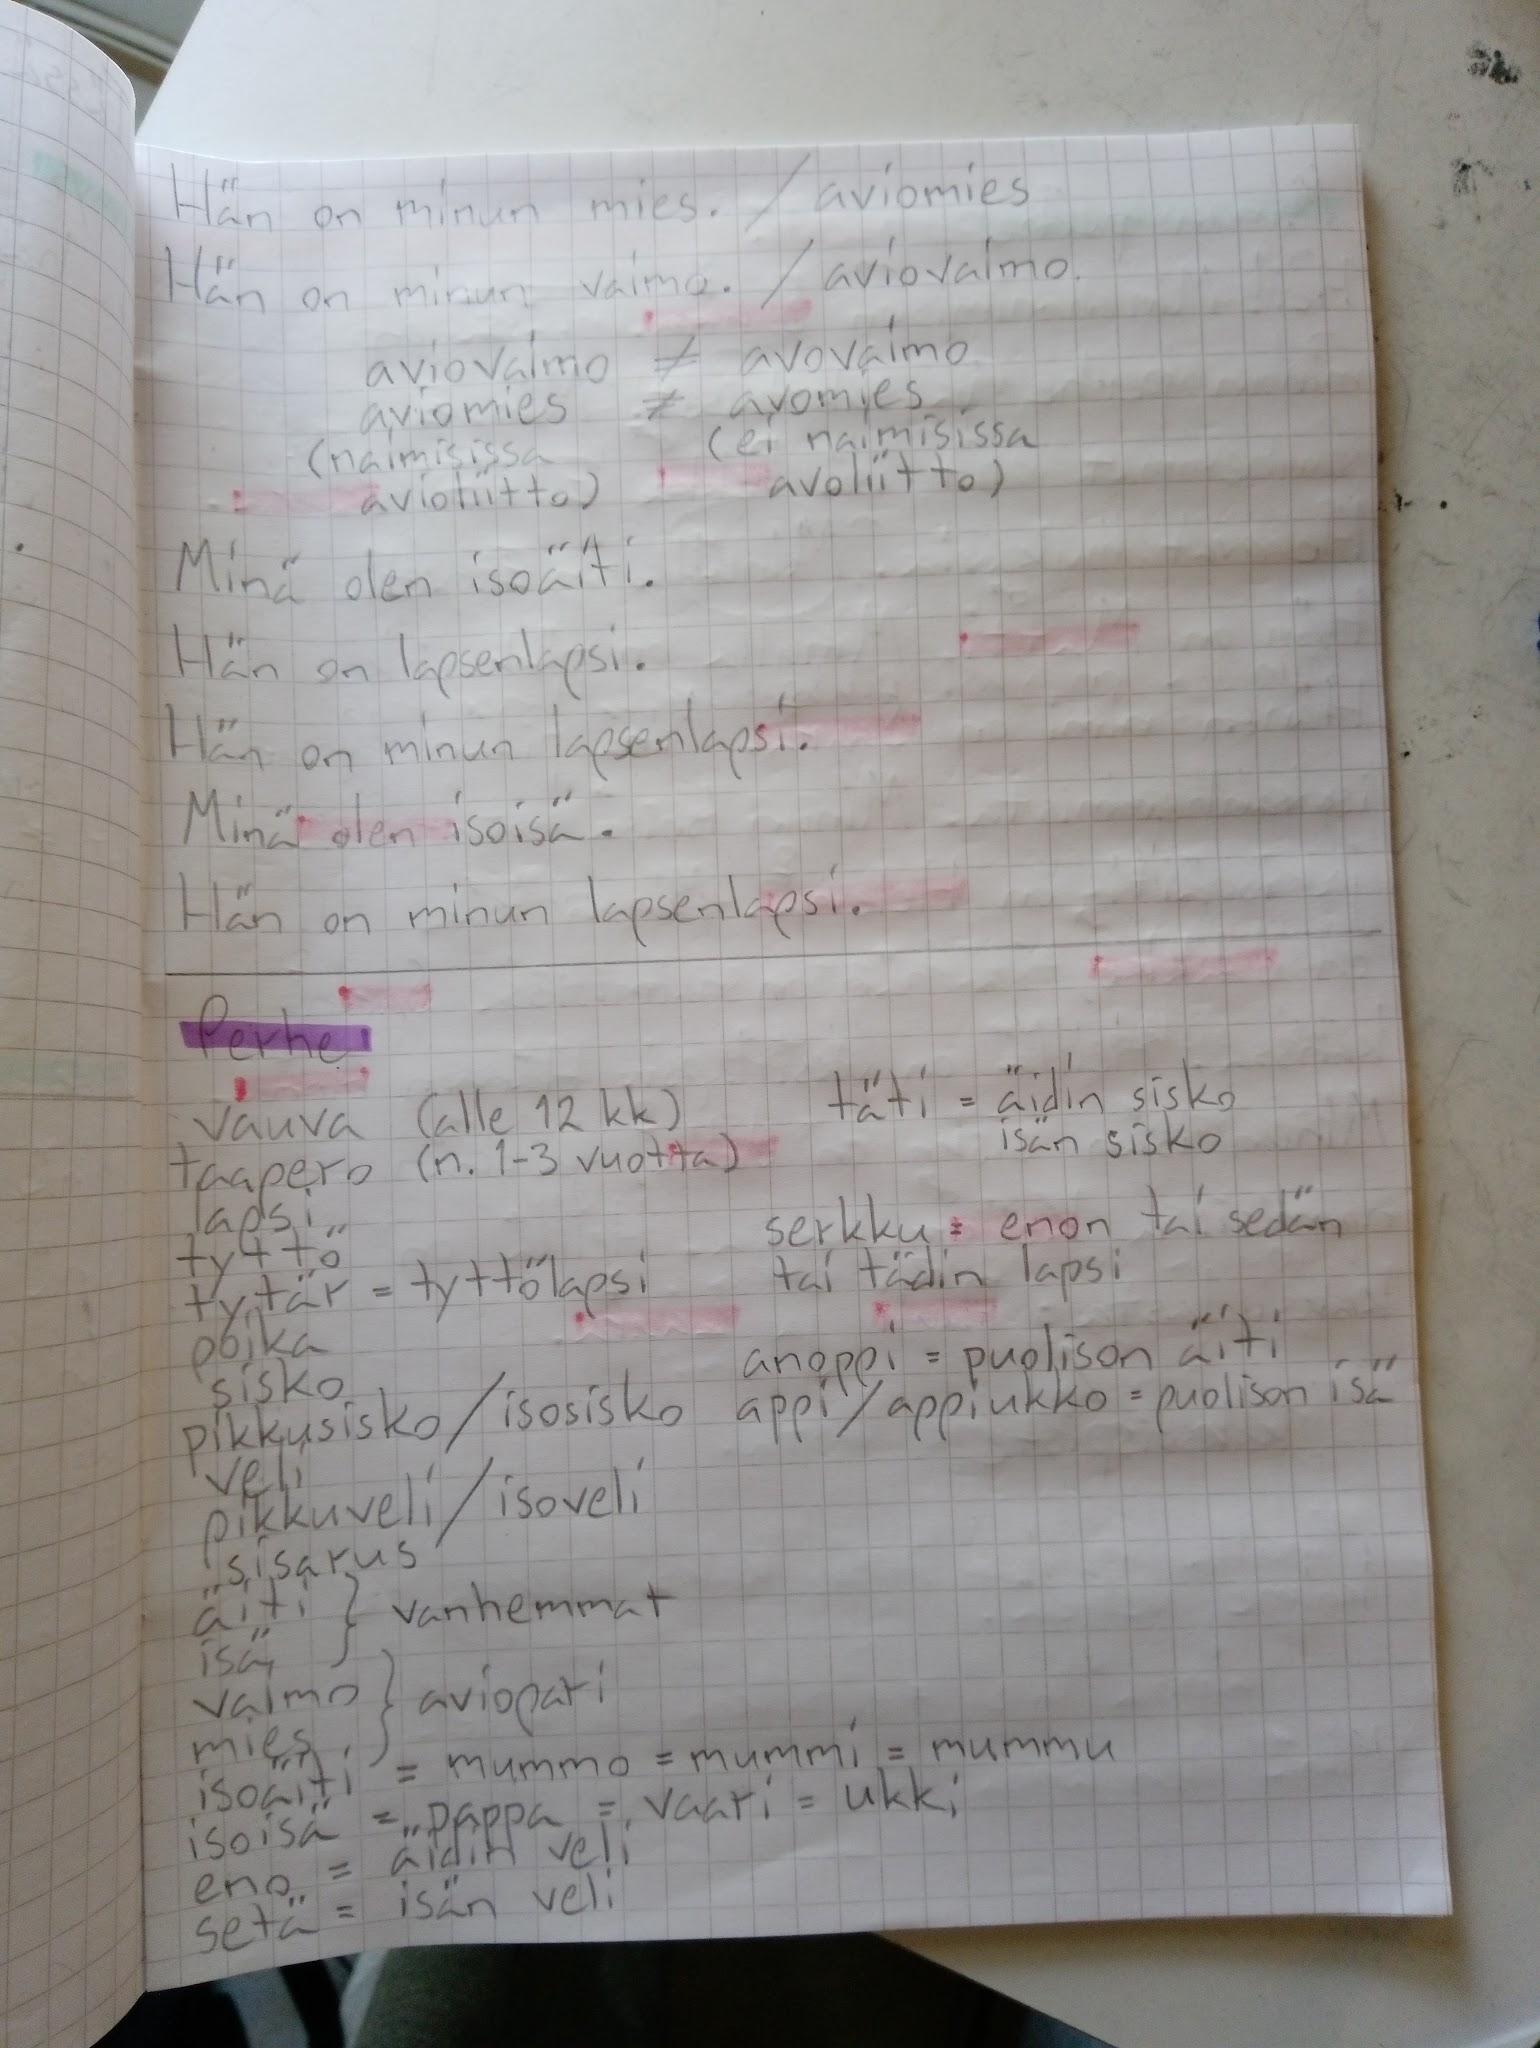 Hän on minun mies. / aviomies
Hän on minun vaimo. / aviovaimo.
aviovaimo ≠ avovaimo
aviomies ≠ avomies
(naimisissa (ei naimisissa
avioliitto) avoliitto)
Minä olen isoäiti.
Hän on lapsenlapsi.
Hän on minun lapsenlapsi.
Minä olen isoisä.
Hän on minun lapsenlapsi.
Perhe
vauva (alle 12 kk)
taapero (n. 1-3 vuotta)
lapsi
tyttö
tytär = tyttölapsi
poika
sisko
pikkusisko / isosisko
veli
pikkuveli / isoveli
sisarus
äiti } vanhemmat
isä
vaimo } aviopari
mies
isoäiti = mummo = mummi = mummu
isoisä = pappa = vaari = ukki
eno = äidin veli
setä = isän veli
täti = äidin sisko
isän sisko
serkku = enon tai sedän
tai tädin lapsi
anoppi = puolison äiti
appi / appiukko = puolison isä